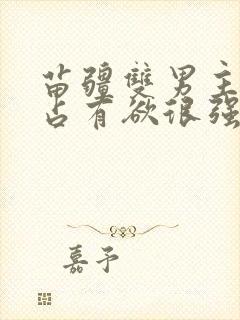 苗疆雙男主
占有欲很强
嘉予